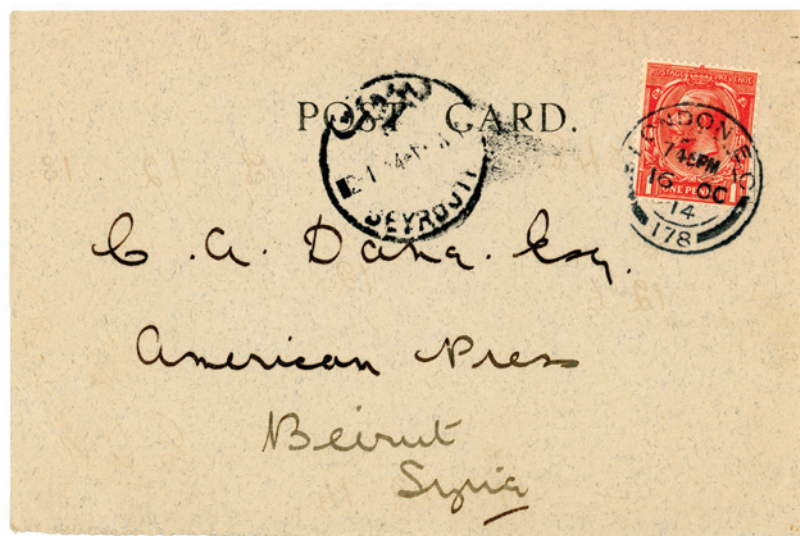 POST CARD.
POSTAGE REVENUE
ONE PENNY
LONDON S.W.
7.45PM
16 OC
14
178
BEYROUTH
C. A. Dana. Esq.
American Press
Beirut
Syria